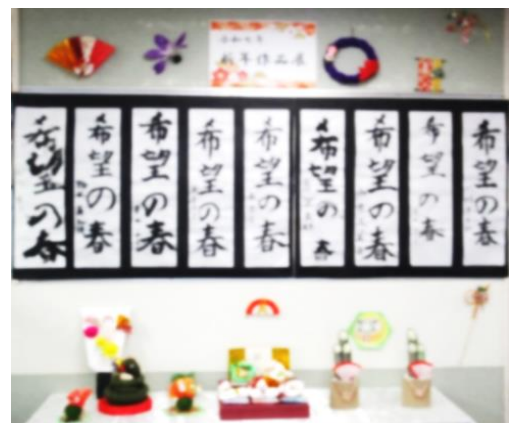 令和七年
新年作品展
希望の春
希望の春
希望の春
希望の春
希望の春
希望の春
希望の春
希望の春
希望の春